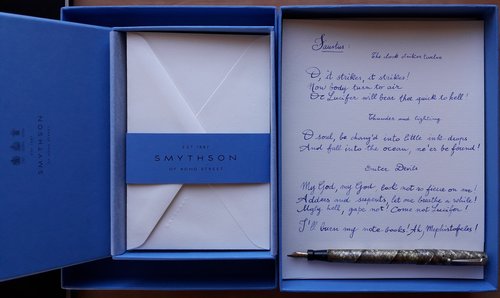 SMYTHSON
EST 1887
SMYTHSON
OF BOND STREET
Faustus:
The clock strikes twelve
O, it strikes, it strikes!
Now body turn to air
Or Lucifer will bear thee quick to hell!
Thunder and lighting
O soul, be chang'd into little ink drops
And fall into the ocean, ne'er be found!
Enter Devils
My God, my God look not so fierce on me!
Adders and serpents, let me breathe a while!
Ugly hell, gape not! Come not Lucifer!
I'll burn my note books! Ah, Mephistopheles!